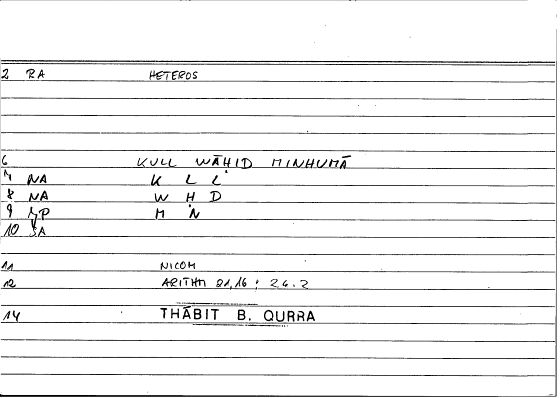 2 RA HETEROS
6 KULL WĀHID MINHUMĀ
7 NA K L L
8 NA W H D
9 NP M N
10 SA
11 NICOM
12 ARITHM 21,16 ; 24.2
14 THĀBIT B. QURRA